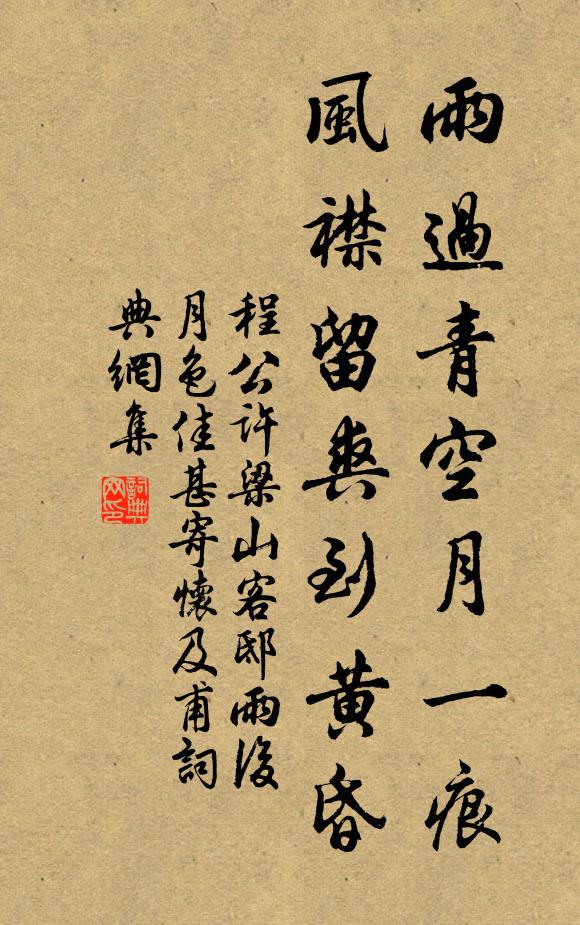 雨過青空月一痕
風襟留爽到黃昏
程公許梁山客邸雨後
月色佳甚寄懷及甫詞
典網集
詞典
网印